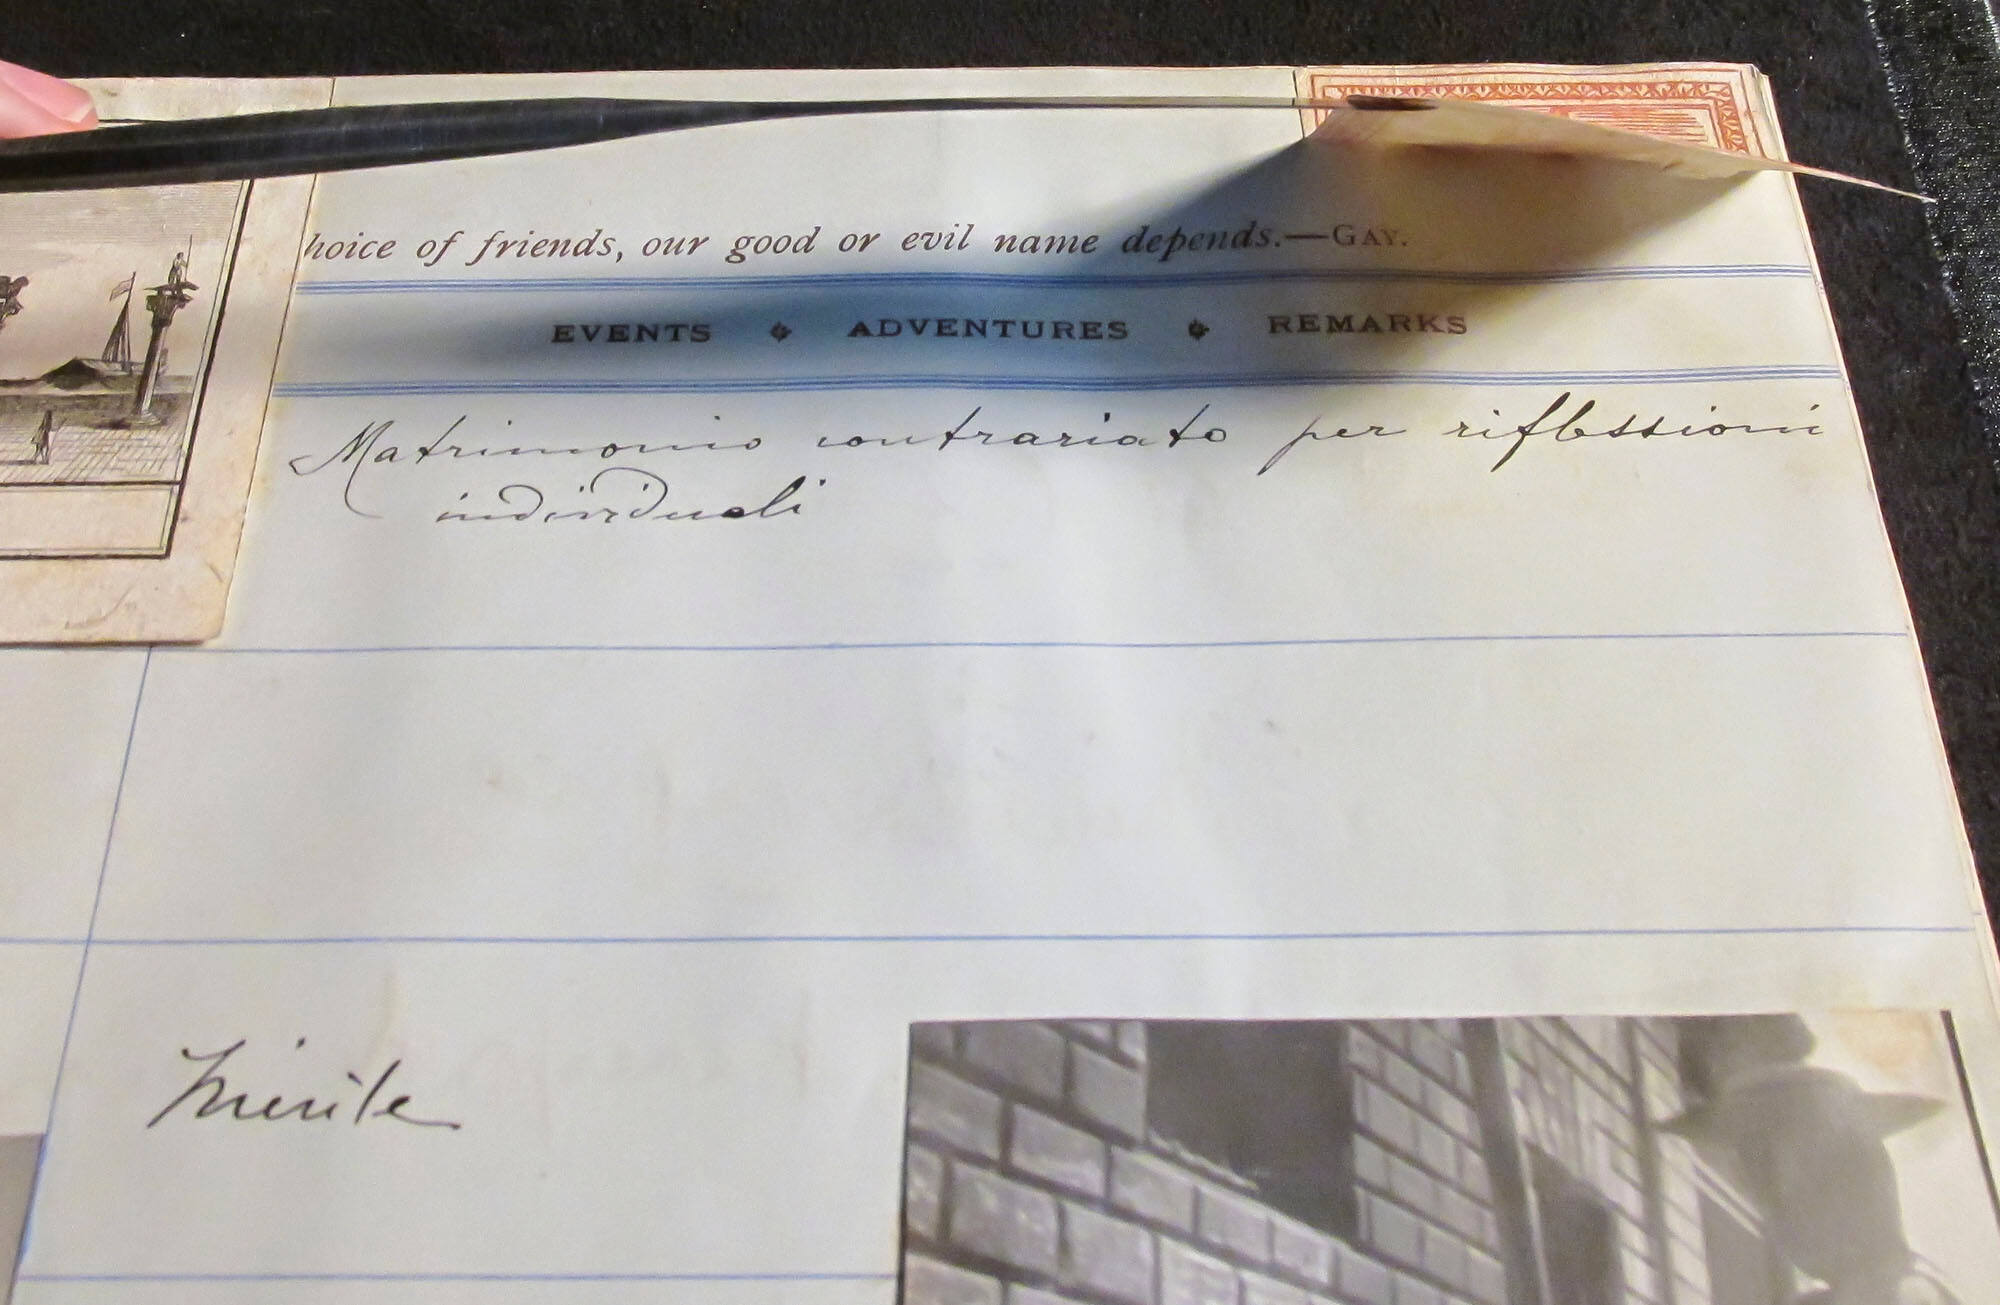 hoice of friends, our good or evil name depends.—GAY.
EVENTS ADVENTURES REMARKS
Matrimonio contrariato per riflessioni
individuali